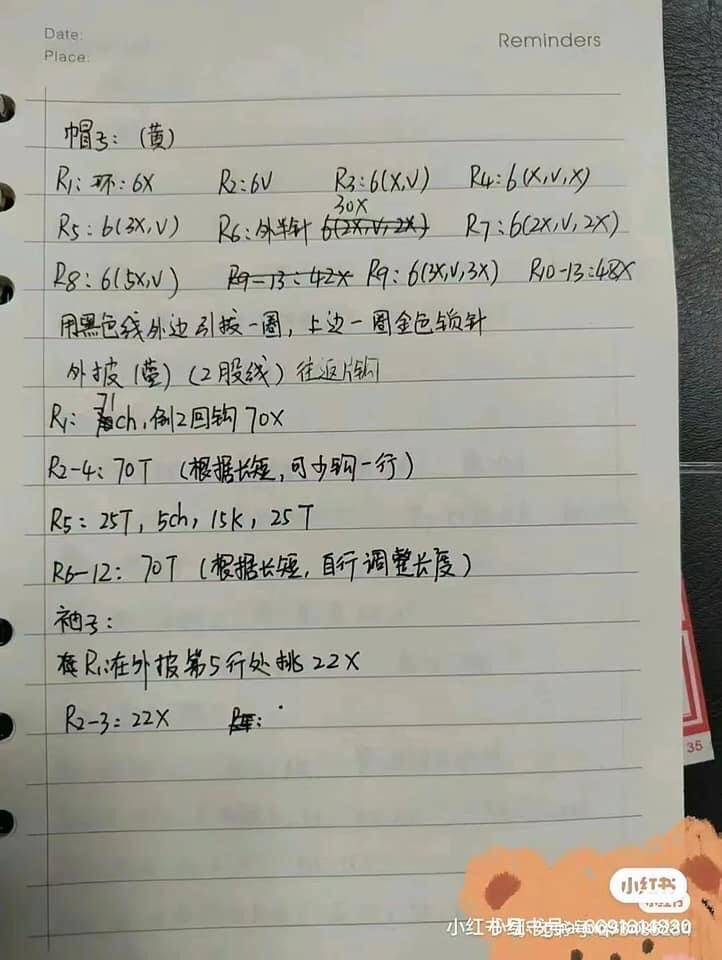 Date:
Place:
Reminders
帽子：（黄）
R1：环：6X R2：6V R3：6(X,V) R4：6(X,V,X)
30X
R5：6(3X,V) R6：外半针 6(2X,V,2X) R7：6(2X,V,2X)
R8：6(5X,V) R9-13：42X R9：6(3X,V,3X) R10-13：48X
用黑色线外边引拔一圈，上边一圈金色锁针
外披（黄）（2股线）往返片钩
71
R1：ch，倒2回钩70X
R2-4：70T（根据长短，可少钩一行）
R5：25T，5ch，15k，25T
R6-12：70T（根据长短，自行调整长度）
袖子：
R1：在外披第5行处挑22X
R2-3：22X
35
小红书
小红书号